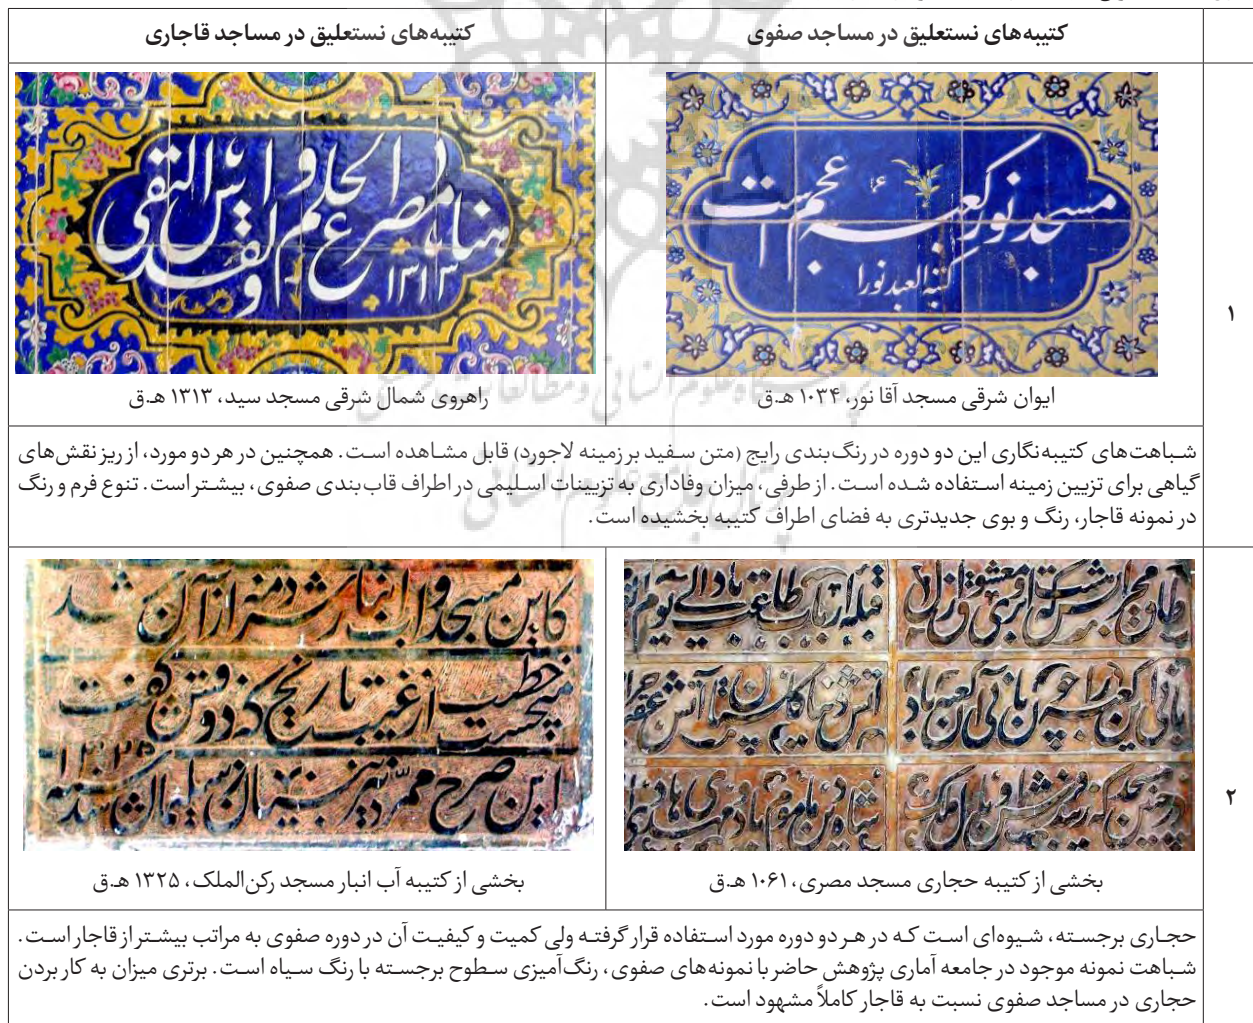 کتیبه‌های نستعلیق در مساجد صفوی
کتیبه‌های نستعلیق در مساجد قاجاری
۱
مسجد نور کعبه عجم است
کتبه العبد نورا
هناد مصرع الحلم و ایس التقی
و لقد
۱۳۱۳
ایوان شرقی مسجد آقا نور، ۱۰۳۴ ه‍.ق
راهروی شمال شرقی مسجد سید، ۱۳۱۳ ه‍.ق
شباهت‌های کتیبه‌نگاری این دو دوره در رنگ‌بندی رایج (متن سفید بر زمینه لاجورد) قابل مشاهده است. همچنین در هر دو مورد، از ریز نقش‌های
گیاهی برای تزیین زمینه استفاده شده است. از طرفی، میزان وفاداری به تزیینات اسلیمی در اطراف قاب‌بندی صفوی، بیشتر است. تنوع فرم و رنگ
در نمونه قاجار، رنگ و بوی جدیدتری به فضای اطراف کتیبه بخشیده است.
۲
بانی این کعبه را چون بانی آن کعبه باد
کاین مسجد و آب انبار
از آن شد
میجست خطیب از غیب تاریخ که دوش گفت
این صرح ممرد بین بنیان ز سلیمان شد
۱۳۲۵
بخشی از کتیبه حجاری مسجد مصری، ۱۰۶۱ ه‍.ق
بخشی از کتیبه آب انبار مسجد رکن‌الملک، ۱۳۲۵ ه‍.ق
حجاری برجسته، شیوه‌ای است که در هر دو دوره مورد استفاده قرار گرفته ولی کمیت و کیفیت آن در دوره صفوی به مراتب بیشتر از قاجار است.
شباهت نمونه موجود در جامعه آماری پژوهش حاضر با نمونه‌های صفوی، رنگ‌آمیزی سطوح برجسته با رنگ سیاه است. برتری میزان به کار بردن
حجاری در مساجد صفوی نسبت به قاجار کاملاً مشهود است.